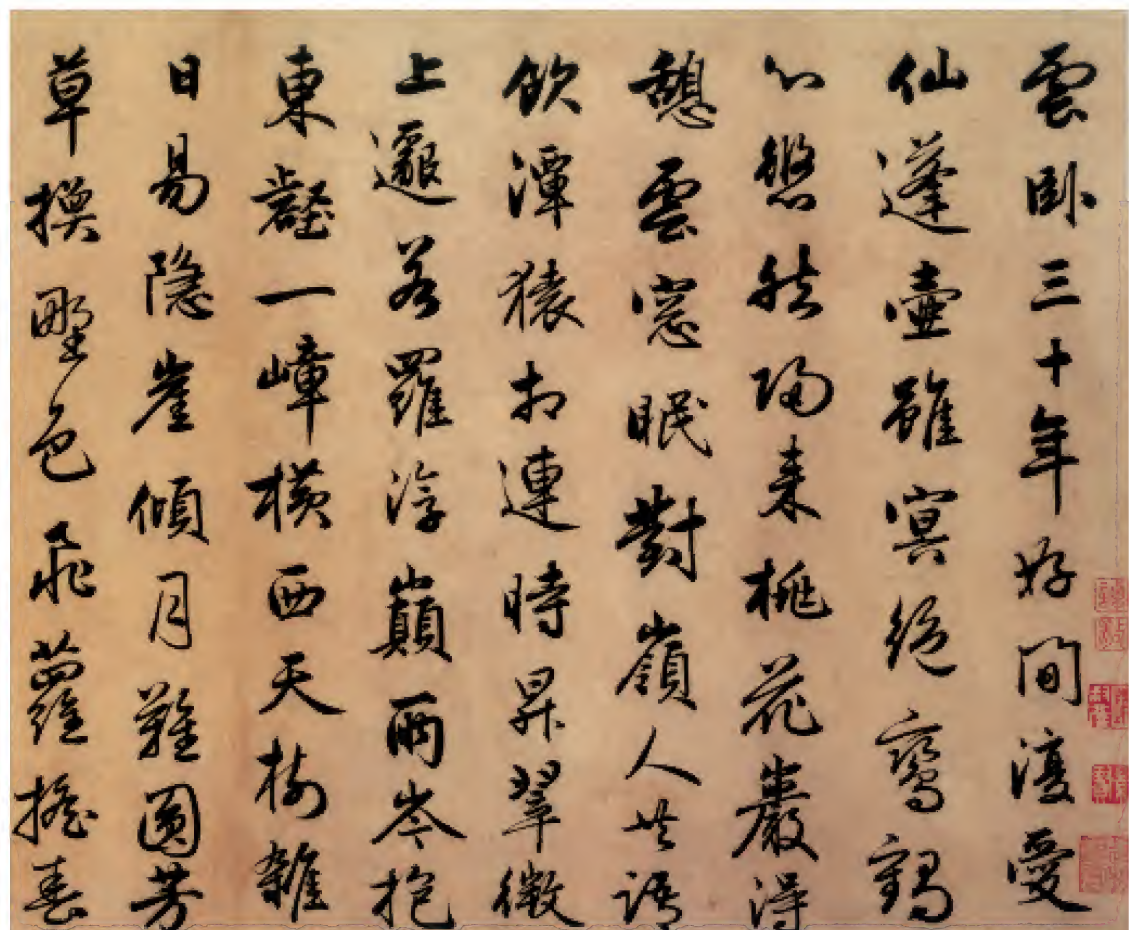 雲臥三十年好間復愛
仙蓬壺雖冥絕鸞鶴
心悠然歸来桃花巖得
憩雲窓眠對嶺人共語
飲潭猿相連時昇翠微
上邈若羅浮巔兩岑抱
東壑一嶂橫西天樹雜
日易隱崖傾月難圓芳
草換野色飛蘿搖春